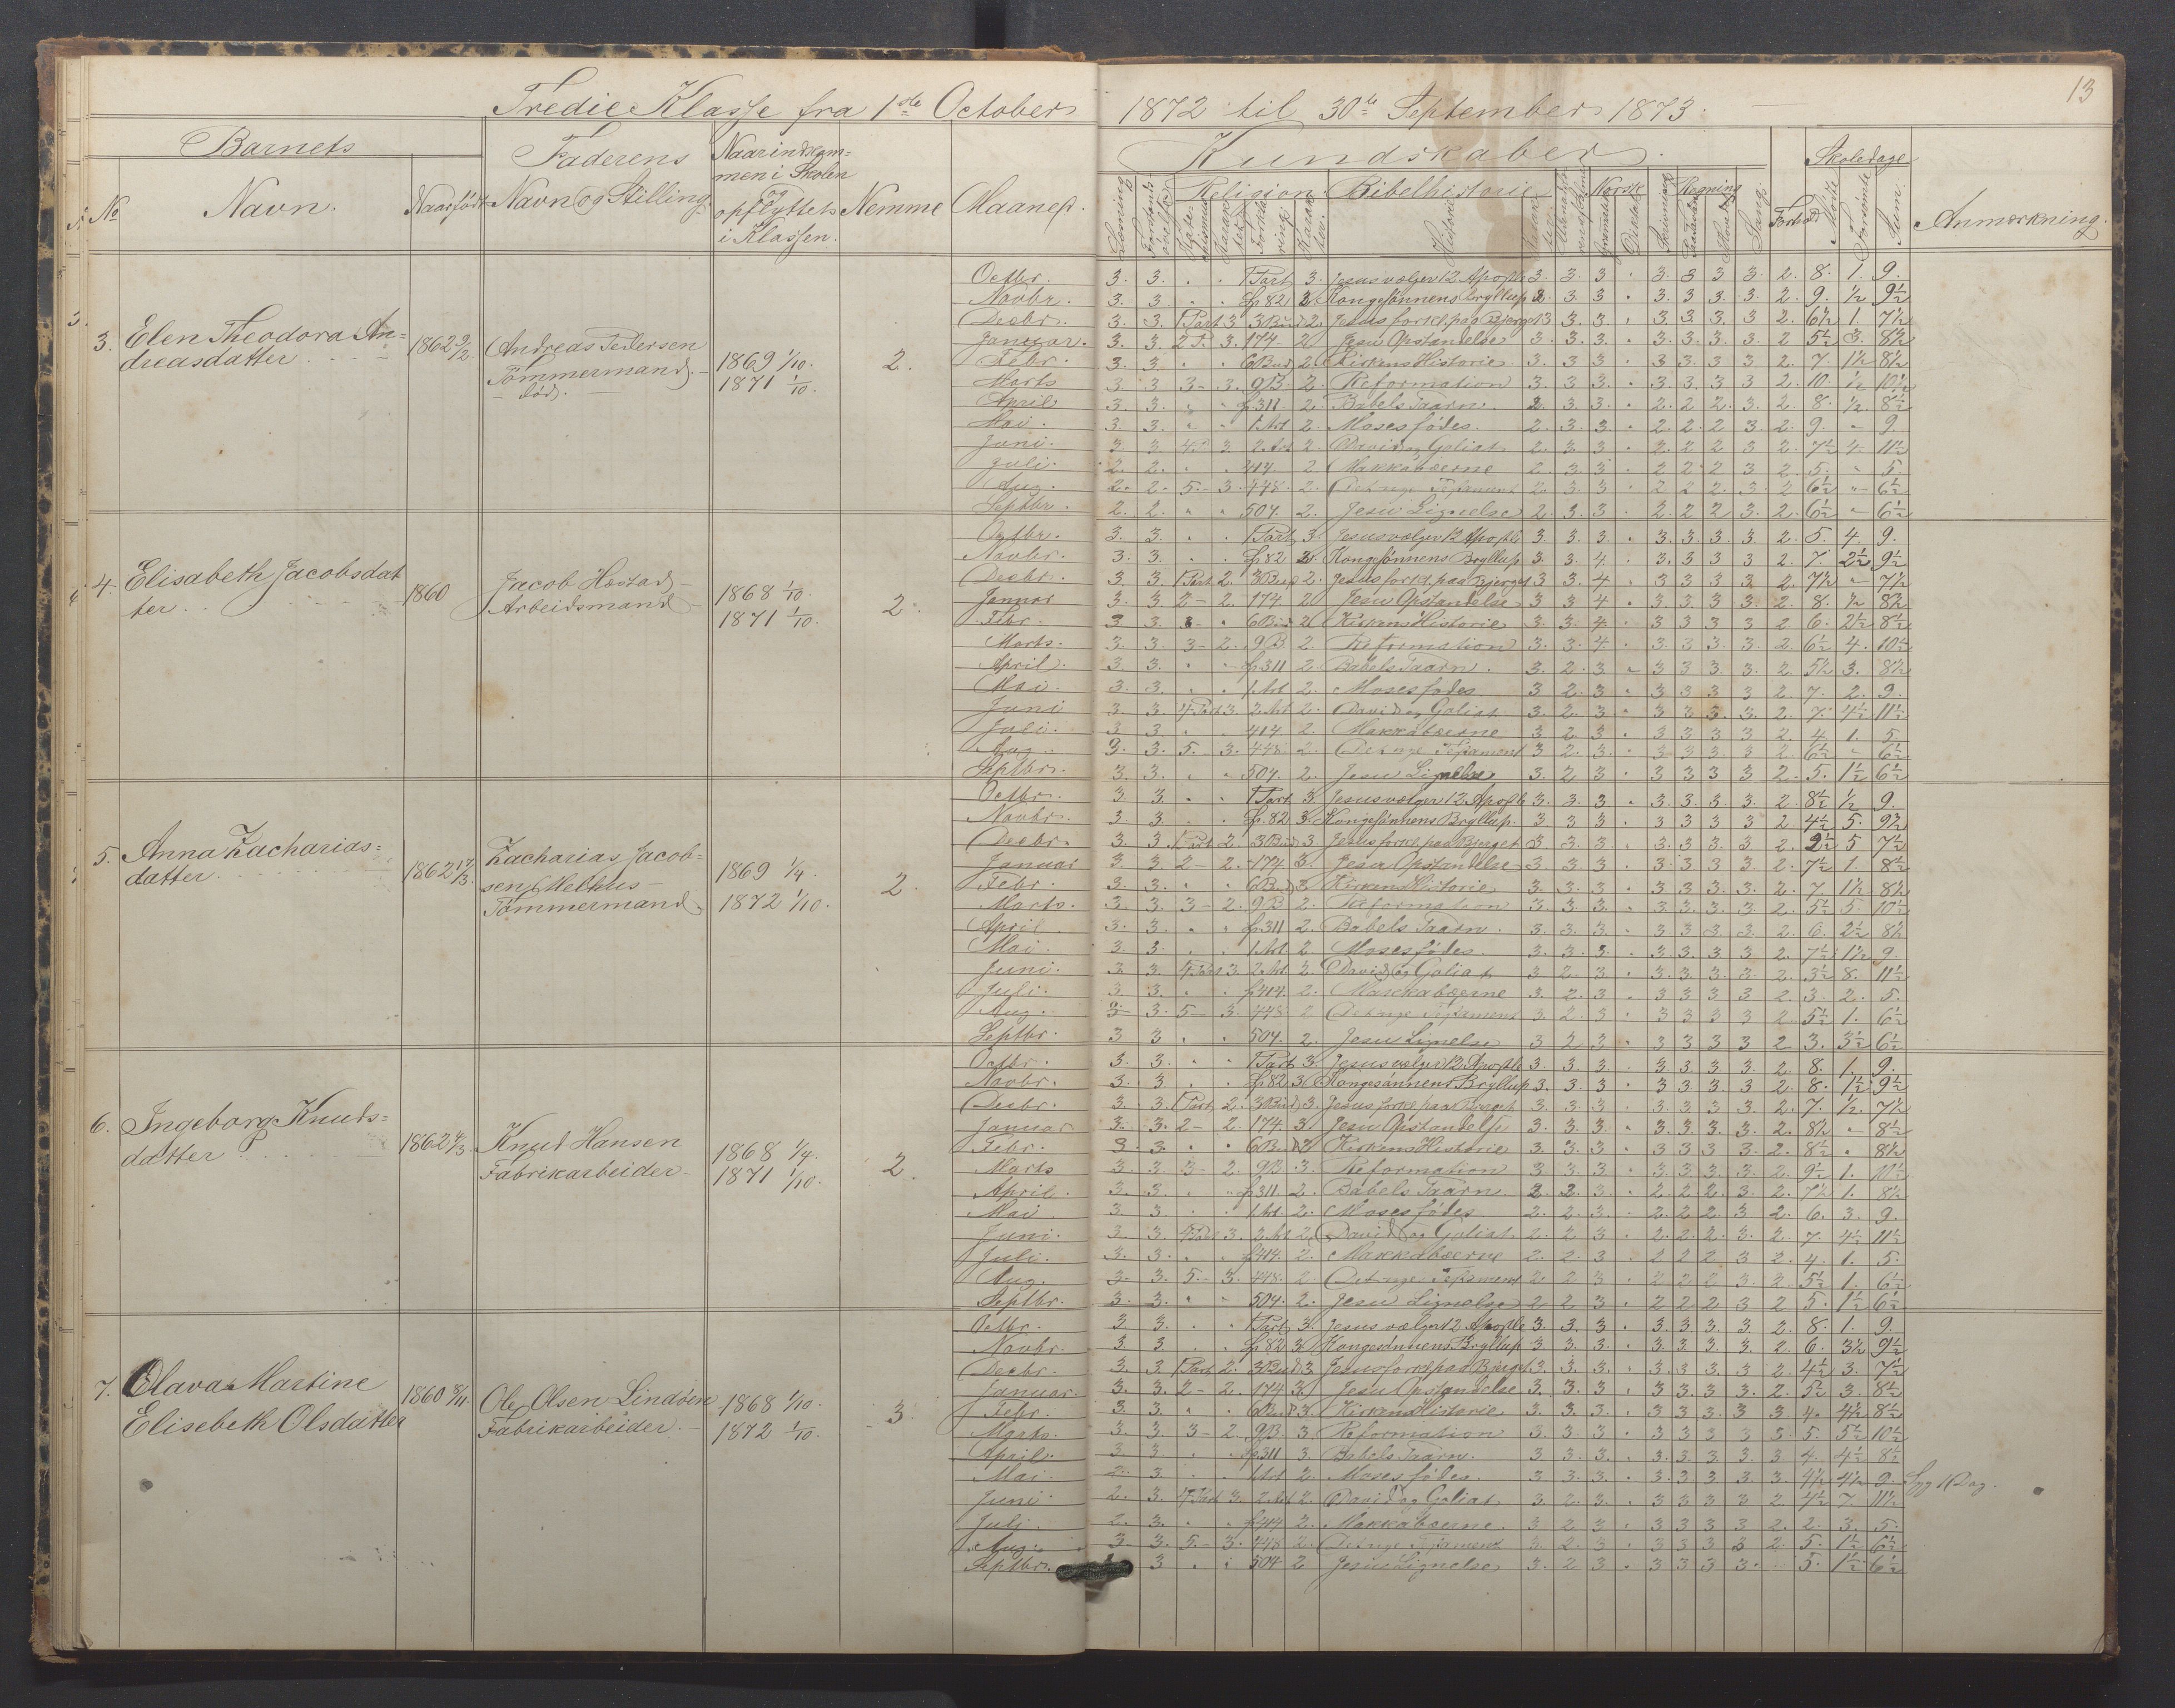 Tredie Klasse fra 1ste October 1872 til 30te September 1873.
13
Barnets
Faderens
Naar indkom=
men i Skolen
Kundskaber.
Skoledage
No Navn. Naar født Navn og Stilling og
opflyttet
i Klassen. Nemme Maaned. Religion. Bibelhistorie Norsk Regning Sang. Forhold Sum. Anmerkning.
3. Elen Theodora An=
dreasdatter
1862 9/2
Andreas Pedersen
Tömmermand.
död.
1869 1/10.
1871 1/10.
2.
Octbr. 3. 3. 1 Part 3. Jesus vælger 12 Apostle 3. 3. 3 3. 3 3 3. 2. 8. 1. 9.
Novbr. 3. 3. p. 82 3 Kongesönnens Bryllup 3. 3. 3 3. 3. 3. 3. 2. 9. 1/2 9 1/2
Decbr. 3. 3. 1 Part 3 3 Bud 2. Jesus forkl. paa Bjerget 3 3. 3. 3. 3. 3. 3 2. 6 1/2 1. 7 1/2
Januar. 3. 3. 2 P. 3. 174 2 Jesu Opstandelse 3. 3. 3. 3. 3. 3. 3. 2 5 1/2 3. 8 1/2
Febr. 3. 3. 6 Bud 2 Kirkens Historie 3. 3. 3 3. 3. 3. 3 2. 7. 1 1/2 8 1/2
Marts 3 3 3 - 3. 9 B. 2. Reformation 3. 3 3. 3. 3. 3 3 2. 10. 1/2 10 1/2
April 3. 3. p. 311. 2. Babels Taarn. 2. 3. 3. 2. 2 2. 3. 2. 8. 1/2. 8 1/2
Mai. 3. 3. 1 Art 2. Moses födes. 2. 3. 3. 2. 2. 2 3 2. 9. " 9
Juni. 3 3. 4 P. 3. 2 Art 2. David og Goliat 2. 3. 3. 2. 2. 2 3 2. 7 1/2 4. 11 1/2
Juli. 2. 2. 414. 2 Makkabæerne 2. 3. 3. 2 2 2 3 2 5. " 5.
Aug. 2. 2. 5. - 3. 448. 2. Det nye Testament 2. 3. 3 2 2 2. 3. 2 6 1/2 " 6 1/2
Septbr. 2. 2. 504. 2. Jesu Lignelse 2. 3. 3 2. 2 2 3. 2. 6 1/2 " 6 1/2
4. Elisabeth Jacobsdat
ter.
1860
Jacob Hæstad
Arbeidsmand
1868 1/10.
1871 1/10.
2.
Octbr. 3. 3. 1 Part 3. Jesus vælger 12 Apostle 3. 3. 3. 3. 3. 3. 3 2. 5. 4. 9.
Novbr. 3. 3. p. 82 3 Kongesönnens Bryllup 3. 3. 4 3. 3 3 3 2. 7. 2 1/2 9 1/2
Decbr. 3 3. 1 Part 2. 3 Bud 2. Jesus forkl. paa Bjerget 3 3. 4 3 3 3 3 2. 7 1/2 " 7 1/2
Januar 3. 3. 2 - 2. 174. 2 Jesu Opstandelse 3 3 4 3. 3. 3 3. 2. 8. 1/2 8 1/2
Febr. 3 3. 6 Bud 2 Kirkens Historie 3. 3. 4 3 3 3 3 2. 6. 2 1/2 8 1/2
Marts. 3. 3. 3 - 2. 9 B. 2. Reformation 3. 3. 4 3. 3. 3. 3. 2 6 1/2 4. 10 1/2
April. 3 3. p. 311 2. Babels Taarn. 3. 2. 3 3 3 3. 3. 2. 5 1/2 3. 8 1/2
Mai. 3. 3. 1 Art 2. Moses födes 3 2. 3 3 3 3 3 2. 7. 2. 9.
Juni 3. 3. 4 Part 3. 2 Art 2. David og Goliat 3. 2. 3 3 3 3. 3. 2. 7. 4 1/2 11 1/2
Juli. 3 3. 414 2. Makkabæerne 3 2 3 3 3 3 3 2. 4. 1. 5
Aug. 3. 3. 5. 3. 448. 2. Det nye Testament 3 2. 3. 3 3 3. 3 2 6 1/2 " 6 1/2
Septbr. 3. 3. 504. 2. Jesu Lignelse 3. 2 3 3 3 3 3 2. 5. 1 1/2 6 1/2
5. Anna Zacharias=
datter
1862 17/3.
Zacharias Jacob=
sen Melhus
Tömmermand
1869 1/4.
1872 1/10.
2.
Octbr. 3 3. 1 Part 3 Jesus vælger 12 Apostle 3. 3. 3 3. 3. 3. 3. 2. 8 1/2 1/2 9.
Novbr. 3. 3. p. 82 3. Kongesönnens Bryllup. 3 3 3 3 3 3 3 2. 4 1/2 5. 9 1/2
Decbr. 3 3. 1 Part 2. 3 Bud 3 Jesus forkl. paa Bjerget 3 3. 3. 3. 3. 3 3 2. 2 1/2 5 7 1/2
Januar 3 3. 2 - 2. 174 3. Jesu Opstandelse 3. 3. 3 3. 3 3 3 2. 7 1/2 1. 8 1/2
Febr. 3. 3. 6 Bud 3. Kirkens Historie 3. 3. 3 3 3 3. 3. 2. 7. 1 1/2 8 1/2
Marts. 3. 3. 3 - 2. 9 B 2. Reformation 3. 3. 3. 3. 3. 3. 3. 2. 5 1/2 5. 10 1/2
April 3. 3. p. 311 2. Babels Taarn. 3. 3. 3. 3 3 3. 3. 2. 6. 2 1/2 8 1/2
Mai. 3 3. 1 Art 2. Moses födes. 3. 3. 3. 3. 3. 3. 3 2. 7 1/2 1 1/2 9.
Juni. 3 3. 4 Part 3. 2 Art 2. David og Goliat 3 2. 3. 3. 3. 3. 3. 2. 3 1/2 8. 11 1/2
Juli. 3 3. p. 414. 2. Makkabæerne 3. 2. 3 3 3 3 3 2. 3. 2. 5.
Aug. 3 3. 5 - 3. 448. 2 Det nye Testament 3. 2. 3. 3 3 3 3 2. 5 1/2 1. 6 1/2
Septbr. 3 3 504. 2. Jesu Lignelse 3 2 3 3 3 3 3 2 3. 3 1/2 6 1/2
6. Ingeborg Knuds=
datter.
1862 4/3.
Knud Hansen
Fabrikarbeider
1868 1/4.
1871 1/10.
2.
Octbr. 3. 3. 1 Part 3. Jesus vælger 12 Apostle 3. 3. 3. 3. 3. 3 3. 2 8. 1. 9.
Novbr. 3. 3 p. 82 3 Kongesönnens Bryllup 3. 3. 3 3 3 3. 3 2. 8. 1 1/2 9 1/2
Decbr. 3. 3. 1 Part 2. 3 Bud 3. Jesus forkl. paa Bjerget 3. 3. 3 3. 3. 3 3. 2. 7. 1/2. 7 1/2
Januar 3. 3. 2 - 2. 174. 3. Jesu Opstandelse 3. 3. 3 3. 3. 3. 3. 2. 8 1/2 " 8 1/2
Febr. 3. 3. 6 Bud 3 Kirkens Historie 3. 3. 3 3 3 3 3. 2. 8 1/2 " 8 1/2
Marts 3. 3. 3 - 2. 9 B 3. Reformation 3 3 3 3. 3. 3. 3. 2 9 1/2 1. 10 1/2
April. 3. 3. p. 311. 2. Babels Taarn. 2. 2. 3 2. 2. 2. 3. 2. 7 1/2 1. 8 1/2
Mai. 3. 3. 1 Art 2. Moses födes. 2. 2. 3. 2. 2 2. 3 2. 6. 3. 9.
Juni. 3. 3. 4 Part 3. 2 Art 2. David og Goliat. 2. 2 3 2. 2. 2. 3. 2. 7. 4 1/2 11 1/2
Juli. 3. 3. p. 414. 2. Makkabæerne 2. 2. 3 2 2 2 3 2. 4. 1. 5.
Aug. 3. 3. 5. - 3. 448. 2. Det nye Testament 2 2 3 2 2 2 3. 2. 5 1/2 1. 6 1/2
Septbr. 3. 3. 504. 2. Jesu Lignelse 2 2 3 2 2 2 3 2 5. 1 1/2 6 1/2
7. Olava Martine
Elisebeth Olsdatter
1860 8/11.
Ole Olsen Lindöen
Fabrikarbeider.
1868 1/10.
1872 1/10.
3.
Octbr. 3. 3. 1 Part 3. Jesus vælger 12 Apostle 3. 3. 3. 3. 3. 3. 3. 2. 8. 1. 9.
Novbr. 3 3 p. 82 3 Kongesönnens Bryllup 3 3 3. 3 3 3. 3. 2 6. 3 1/2 9 1/2
Decbr. 3. 3. 1 Part 2. 3 Bud 3. Jesus forkl. paa Bjerget 3 3. 3. 3. 3. 3. 3 2. 4 1/2 3. 7 1/2
Januar. 3. 3. 2 - 2. 174 3 Jesu Opstandelse 3. 3. 3 3 3. 3 3. 2. 5 1/2 3. 8 1/2
Febr. 3. 3. 6 Bud 3. Kirkens Historie 3. 3. 3. 3 3 3. 3 3. 4. 4 1/2 8 1/2
Marts. 3. 3. 3 - 2. 9 B. 3 Reformation 3. 3. 3 3 3 3 3 3. 5. 5 1/2 10 1/2
April. 3 3. p. 311 3. Babels Taarn. 3 3. 3. 3. 3. 3. 3 3 4. 4 1/2 8 1/2
Mai. 2. 3. 1 Art 2. Moses födes. 3 3. 3. 3. 3. 3. 3. 3. 4 1/2 4 1/2 9. Syg 1 Dag.
Juni 2. 3. 4 Part 3. 2 Art 2. David og Goliat. 3. 2. 3. 3 3 3 3 2. 4 1/2 7. 11 1/2
Juli. 2. 3. p. 414 2. Makkabæerne. 3 2 3 3 3 3 3 2. 2. 3. 5.
Aug. 3. 3. 5. - 3. 448. 2. Det nye Testament 3. 2. 3 3 3 3 3 2. 5. 1 1/2 6 1/2
Septbr. 3 504 2 Jesu Lignelse 3. 2 3 3 3 3 3. 5. 1 1/2 6 1/2